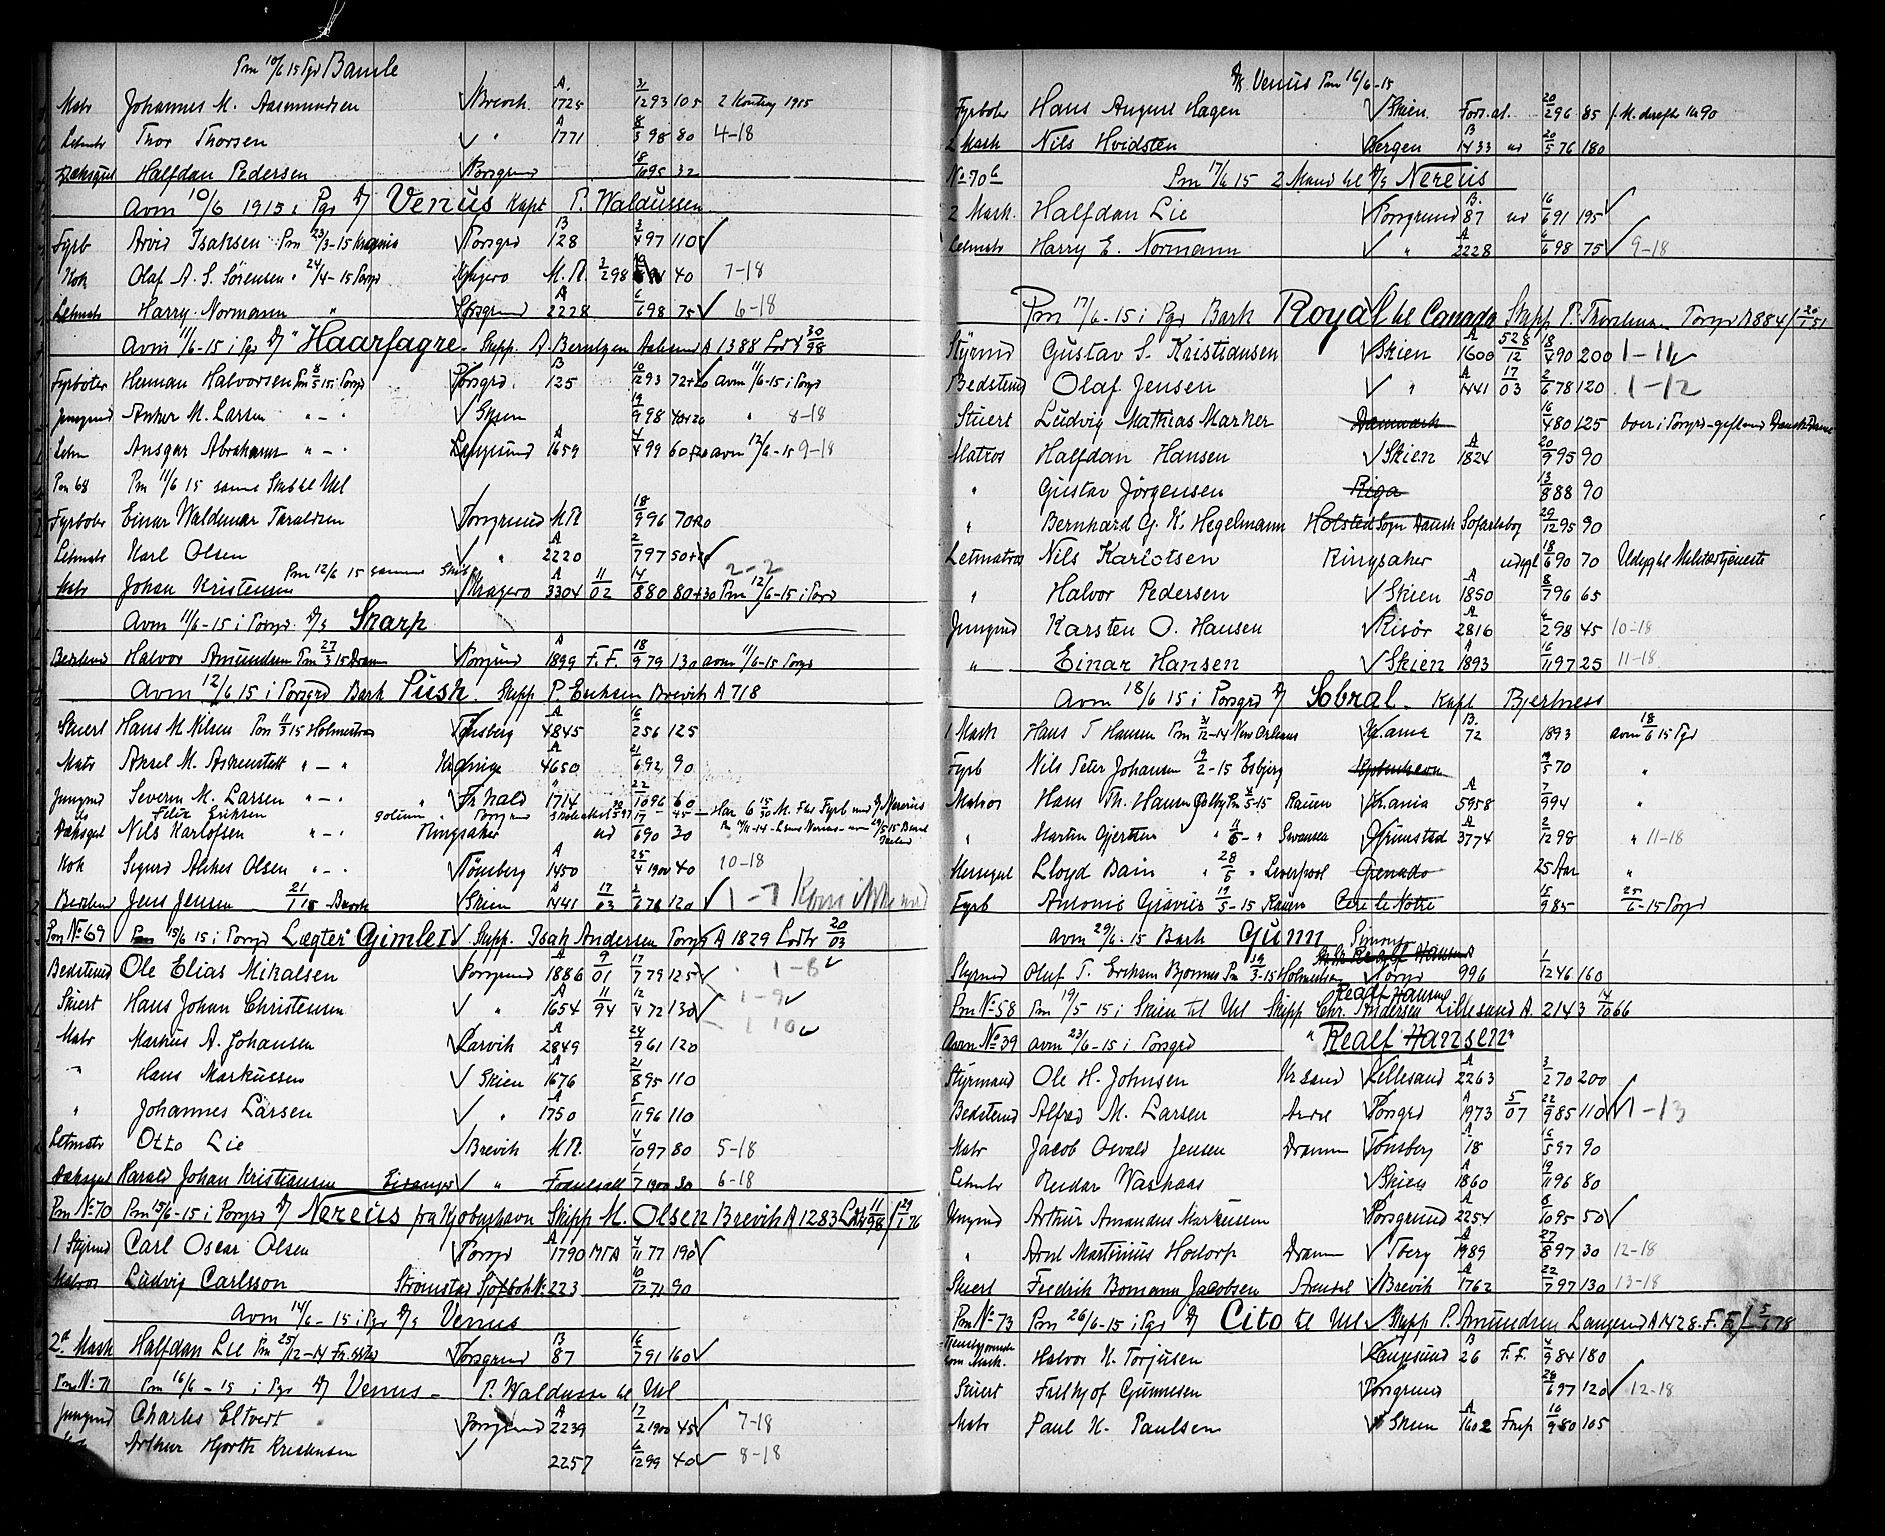 Pm 10/6 15 Pgr Bamle
Matr Johannes M. Aasmundsen Brevik A. 1725 31/12 93 105 2 Konting 1915
Letmatr Thor Thorsen " A 1771 8/3 98 80 4-18
Dæksgut Halfdan Pedersen Porsgrund 18/10 95 32
Avm 10/6 1915 i Pgr D/ Venus Kapt P. Waldussen
Fyrb Arvid Isaksen Pm 23/3-15 Porsgrd B 128 3/4 97 110
Kok Olaf A. S. Sörensen " 24/4-15 Porsgr Kragerö M.R. 3/2 98 40 7-18
Letmatr Harry Normann " Porsgrund A 2228 6/6 98 75 6-18
Avm 11/6-15 i Pgr D/ "Haarfagre" Skipp. A. Berntzen A 1388 Lodtr 30/98
Fyrböter Herman Halvorsen Pm 8/5 15 i Porsgr Porsgrd. B 125 10/12 93 72+20 avm 11/6-15 i Porsgr
Jungmd Anker M. Larsen " - " Skien 19/9 98 40+20 " 8-18
Letm Ansgar Abrahams " - " Langesund A 1659 4/4 99 60+20 avm 12/6-15 9-18
Pm 68 Pm 11/6 15 samme Skib til Utl
Fyrböter Einar Waldemar Taraldsen Porsgrund M.R. 18/9 96 70+20
Letmatr Karl Olsen " A 2220 2/7 97 50+20
Pm 12/6 15 samme Skib 2-2
Matr Johan Kristensen Kragerö A 3304 11/02 14/8 80 80+30 Pm 12/6-15 i Porsgr
Avm 11/6-15 i Porsgr. D/s Skarp
Bestmd Halvor Amundsen Pm 27/3 15 Dram Porsgrund A 1899 F.F. 18/9 79 130 avm 11/6-15 Porsgr
Avm 12/6 15 i Porsgrd Bark Pusk. Skipp P. Eriksen Brevik A 718
Stuert Hans M. Nilsen Pm 11/3 15 Holmestrand Tönsberg A 4845 16/2 56 125
Matr Aksel M. Askenstedt " - " A 4650 21/6 92 90
Jungmd Severin M. Larsen " - " Fr.hald 1714 22/10 96 60
Felix Eriksen
Dæksgut Nils Karlofsen " - " Ringsaker 6 90 30
Kok Sigurd Alskes Olsen " - " Tönsberg A 1450 25/4 1900 40 10-18
Bestmd Jens Jensen 21/1 15 Brevik Skien A 1441 17/03 2/6 78 120 1-7 Kom ikke med
Pm No. 69 Pm 15/6 15 i Porsgr Lægter "Gimle" Skipp. Isak Andersen Porsgr A 1829 Lodtr 20/03
Bedstmd Ole Elias Mikalsen Porsgrund A 1886 9/01 17/7 79 125 1-8
Stuert Hans Johan Christensen " A 1654 11/94 12/4 72 130 1-9
1-10
Matr Markus A. Johansen Larvik A 2849 24/9 61 120
" Hans Markussen Skien A 1676 21/8 95 110
" Johannes Larsen " A 1750 5/11 96 110
Letmatr Otto Lie Brevik M.R. 4/10 97 80 5-18
Dæksgut Harald Johan Kristiansen " 1/7 1900 30 6-18
Pm No. 70 Pm 15/6-15 i Porsgrd D/ Nereus fra Kjöbenhavn Skipp M. Olsen Brevik A 1283 Lodtr 11/98 29/1 76
1 Styrmd Carl Oscar Olsen Porsgr A 1790 MTA 4/11 77 190
Matros Ludvig Carlsson Strömstad Sjöfbok No. 223 10/12 71 90
Avm 14/6-15 i Pgr D/s Venus
2d. Mask Halfdan Lie Pm 25/12-14 Porsgrund B 87 16/7 91 160
Pm No. 71 Pm 16/6-15 i Pgr D/ Venus - P. Waldusse til Utl
Jungmd Charles Eltvedt Porsgrund A 2239 17/2 1900 45 7-18
Arthur Hjorth Kristensen 2257 6/12 99 40 8-18
D/s Venus Pm 16/6-15
Fyrböter Hans August Hagen Skien Fors.al. 20/2 96 85
2 Mask Nils Hvidsten Bergen B 1433 ud 20/5 76 180
No 70 b Pm 17/6 15 2 Mand til D/s Nereus
2 Mask. Halfdan Lie Porsgrund B. 87 ud 16/6 91 195
Letmatr Harry E. Normann " A 2228 6/6 98 75 9-18
Pm 17/6-15 i Pgr Bark Royal til Canada Skipp P. Thorsen Porsgr A 884 / 20/1 51
Styrmd Gustav S. Kristiansen Skien A 1600 528/12 18/4 90 200 1-11
Bedstmd Olaf Jensen " A 1441 17/03 2/6 78 120 1-12
Stuert Ludvig Mathias Marker Danmark 16/4 80 125 boer i Porsgr - gift med Dansk Dame
Matros Halfdan Hansen Skien A 1824 20/9 95 90
" Gustav Jörgensen Riga 13/8 88 90
" Bernhard G. K. Hegelmann Holsted Sogn Dansk Sofartsbog 29/12 95 90
Letmatros Nils Karlotsen Ringsaker udygl 18/6 90 70 Udyg til Militærtjeneste
" Halvor Pedersen Skien A 1850 8/7 96 65
Jungmd Karsten O. Hansen Risör A 2816 6/2 98 45 10-18
" Einar Hansen Skien A 1893 16/11 97 25 11-18
Avm 18/6 15 i Porsgrd D/ Sobral - Kapt Bjertness
1 Mask Hans T Hansen Pm 31/12-14 New Orleans Kr.ania B. 72 1893 avm 18/6 15 Pgr
Fyrb Nils Peter Johansen 19/2-15 Esbjerg Kjöbenhavn 19/5 70 "
Matros Hans Th. Hansen Pm 4/5-15 Rauen Kr.ania A 5958 7/9 94 "
" Martin Gjertsen " 11/5- " Swansea Grimstad A 3774 2/12 98 " 11-18
Messegut Lloyd Bain " 28/5 " Liverpool Grenado 25 Aar "
Fyrb Antonio 19/5-15 Rauen 15/9 85 25/6-15 Porsgr
Avm 29/6-15 Bark Gunn
Styrmd Oluf T. Eriksen Bjonnes Pm 19/3-15 Holmestrand Porsgr 996 1/12 46 160
Realf Hansen
Pm No. 58 Pm 19/5 15 i Skien til Utl Skipp Chr. Andersen Lillesand A. 2143 14/10 66
Avm No. 39 avm 23/6-15 i Porsgrd "Realf Hansen"
Styrmand Ole H. Johnsen Kr.sand Lillesand A 2263 3/2 70 200
Bedstemd Alfred M. Larsen Porsgr A 1973 5/07 22/9 85 110 1-13
Matr Jacob Osvald Jensen Dramm Tönsberg A 18 16/5 97 90
Letmatr Reidar Vashaas Skien A 1860 19/11 96 80
Ungmd Arthur Amandus Markussen Porsgrund A 2254 8/10 95 50
" Arnt Martinius Hodorp Dramm Tberg A 1989 27/8 97 30 12-18
Stuert Fredrik Bomann Jacobsen Arendal Brevik A 1762 22/7 97 130 13-18
Pm No. 73 Pm 26/6-15 i Pgr D/ Cito til Utl Skipp P. Amundsen Langesund A 1428. F. F. / 5/6 78
som Mask. Halvor N. Torjusen Langesund B 26 F.F. 4/9 84 180
Stuert Frithjof Gunnesen Porsgrund 28/6 97 120 12-18
Matr Paul N. Paulsen Skien A 1602 16/9 80 105